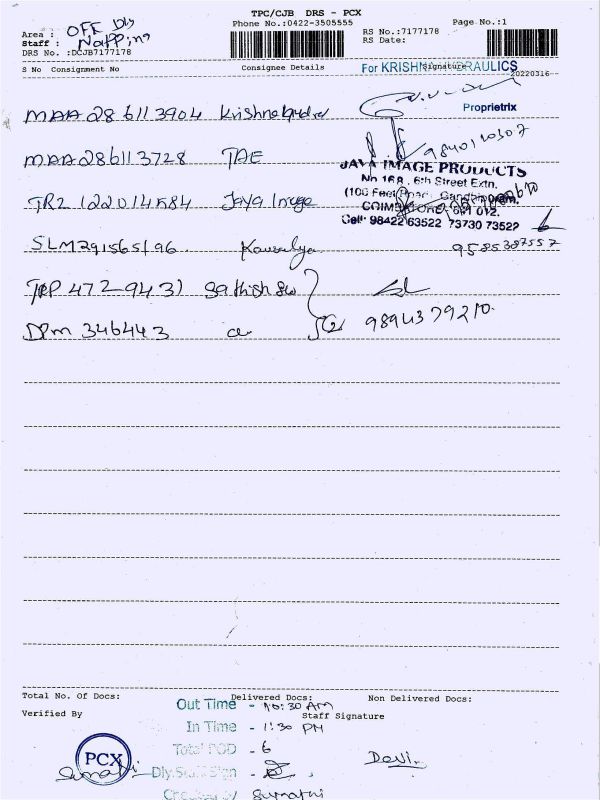 TPC/CJB DRS - PCX
Phone No.:0422-3505555
Page No.:1
Area : OFF Dly
Staff :
DRS No. :DCJB7177178
RS No.:7177178
RS Date:
20220316
S No Consignment No Consignee Details Signature
For KRISHNA HYDRAULICS
Proprietrix
MAA286113904
9840110307
MAA286113728 TAE
JAYA IMAGE PRODUCTS
No 168, 6th Street Extn.
(100 Feet Road, Gandhipuram,
COIMBATORE - 641 012.
Cell: 98422 63522 73730 73522
TRZ 122014584 Jaya Image
SLM291565196 Kousalya
9585387557
472 9431
DPM 346443
9894379210.
Total No. Of Docs: Delivered Docs: Non Delivered Docs:
Verified By Staff Signature
Out Time - 10:30 AM
In Time - 1:30 PM
Total POD - 6
Dly.Staff Sign -
Checked by Sumathi
PCX
Sumathi
Devi.